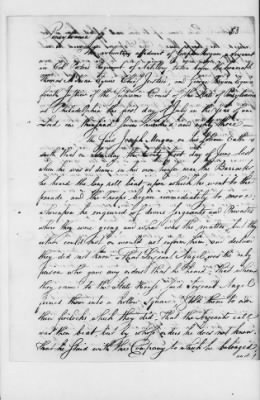 53
Pennsylvania
The voluntary affidavit of Joseph Morgan a Sergeant
in Col. Regiment of Artillery taken before the Honorable
Thomas M.Kean Esquire Chief Justice, and George Bryan Esquire
fourth Justice of the Supreme Court of the State of Pennsylvania
Philadelphia the first day of July in the Year of our
Lord one thousand seven hundred and eighty three
The said Joseph Morgan on his solemn Oath
saith that on Saturday the twenty first day of June last
when he was at dinner in his own house near the Barracks
he heard the long roll beat upon which he went to the
parade and the Troops began immediately to move;
whereupon he enquired of divers Sergeants and Privates
where they were going and what was the matter, but they
either could not or would not inform him, but declared
they did not know. That Serjeant Nagel was the only
person who gave any orders that he heard. That when
they came to the State House, said Serjeant Nagel
formed them into a hollow square, told them to order
their firelocks which they did. That the Serjeants call
was then beat, but by whose orders he does not know.
That he staid with the Company to which he belonged
and